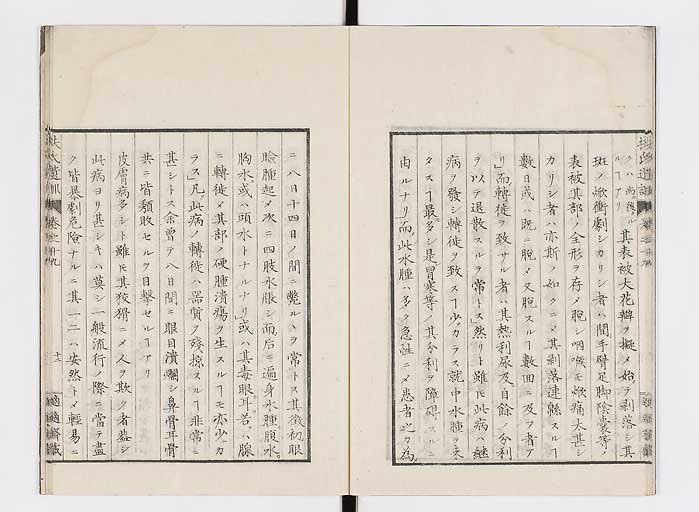 クハ兩後ル
ルーアリ
其表被大花瓣ヲ擬メ始テ剥落シ其
斑ノ焮衝劇シカリシ者ハ間手臂足脚陰嚢等ノ
表被其部ノ全形ヲ存メ脱シ咽喉モ焮痛太甚シ
カリシ者ハ亦斯ノ如クニメ其剥落連緜スルヿ
數日或ハ既ニ脱メ又脱スルヿ數回ニ及フ者ア
リ而轉徙ヲ致サル者ハ其熱利尿及自餘ノ分利
ヲ以テ退散スルヲ常トス然リト雖𪜈此病ハ継
病ヲ發シ轉徙ヲ致スヿ少カラス就中水腫ヲ来
タスヿ最多シ是冒寒等ノ其分利ヲ障碍スルニ
由ルナリ而此水腫ハ多ク急性ニメ患者之カ為
ニ八日十四日ノ間ニ斃ルヽヲ常トス其徴初眼
瞼腫起メ次ニ四肢水脹シ而后ニ遍身水腫腹水
胸水或ハ頭水トナルナリ或ハ其毒眼耳若ハ腺
ニ轉徙メ其部ノ硬腫潰瘍ヲ生スルヿモ亦少カ
ラス凡此病ノ轉徙ハ器質ヲ殘掠スルヿ非常ニ
甚シトス余曽テ八日間ニ眼目潰爛シ鼻骨耳骨
共ニ皆頽敗セルヲ目擊セルヿアリ
皮膚病多シト雖𪜈其狡猾ニメ人ヲ欺ク者蓋シ
此病ヨリ甚シキハ莫シ一般流行ノ際ニ當テ盡
ク皆暴劇危險ナルニ其一二ハ安然トメ輕易ニ
扶氏遺訓
卷之十九
十二
適適齋藏